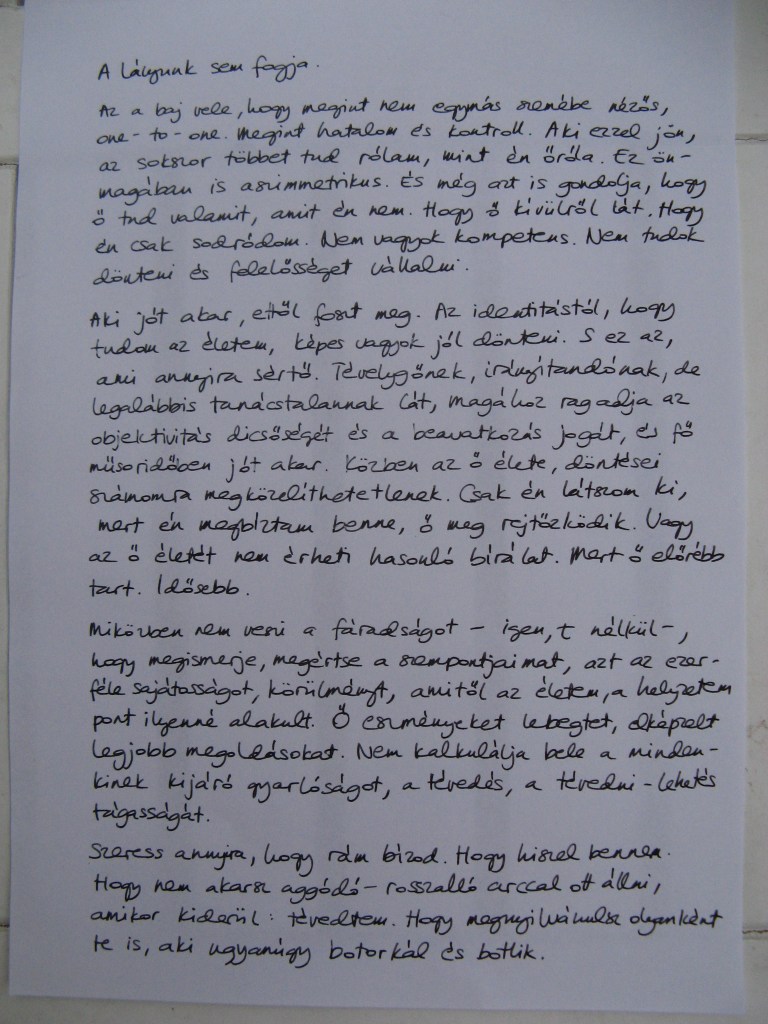 A lányunk sem fogja.
Az a baj vele, hogy megint nem egymás szemébe nézős,
one-to-one. Megint hatalom és kontroll. Aki ezzel jön,
az sokszor többet tud rólam, mint én őróla. Ez ön-
magában is aszimmetrikus. És még azt is gondolja, hogy
ő tud valamit, amit én nem. Hogy ő kívülről lát. Hogy
én csak sodródom. Nem vagyok kompetens. Nem tudok
dönteni és felelősséget vállalni.
Aki jót akar, ettől foszt meg. Az identitástól, hogy
tudom az életem, képes vagyok jól dönteni. S ez az,
ami annyira sértő. Tévelygőnek, irányítandónak, de
legalábbis tanácstalannak lát, magához ragadja az
objektivitás dicsőségét és a beavatkozás jogát, és fő
műsoridőben jót akar. Közben az ő élete, döntései
számomra megközelíthetetlenek. Csak én látszom ki,
mert én megbíztam benne, ő meg rejtőzködik. Vagy
az ő életét nem érheti hasonló bírálat. Mert ő előrébb
tart. Idősebb.
Miközben nem veszi a fáradságot – igen, t nélkül –,
hogy megismerje, megértse a szempontjaimat, azt az ezer-
féle sajátosságot, körülményt, amitől az életem, a helyzetem
pont ilyenné alakult. Ő eszményeket lebegtet, elképzelt
legjobb megoldásokat. Nem kalkulálja bele a minden-
kinek kijáró gyarlóságot, a tévedés, a tévedni-lehetés
tágasságát.
Szeress annyira, hogy rám bízod. Hogy hiszel bennem.
Hogy nem akarsz aggódó-rosszalló arccal ott állni,
amikor kiderül: tévedtem. Hogy megnyilvánulsz olyanként
te is, aki ugyanúgy botorkál és botlik.